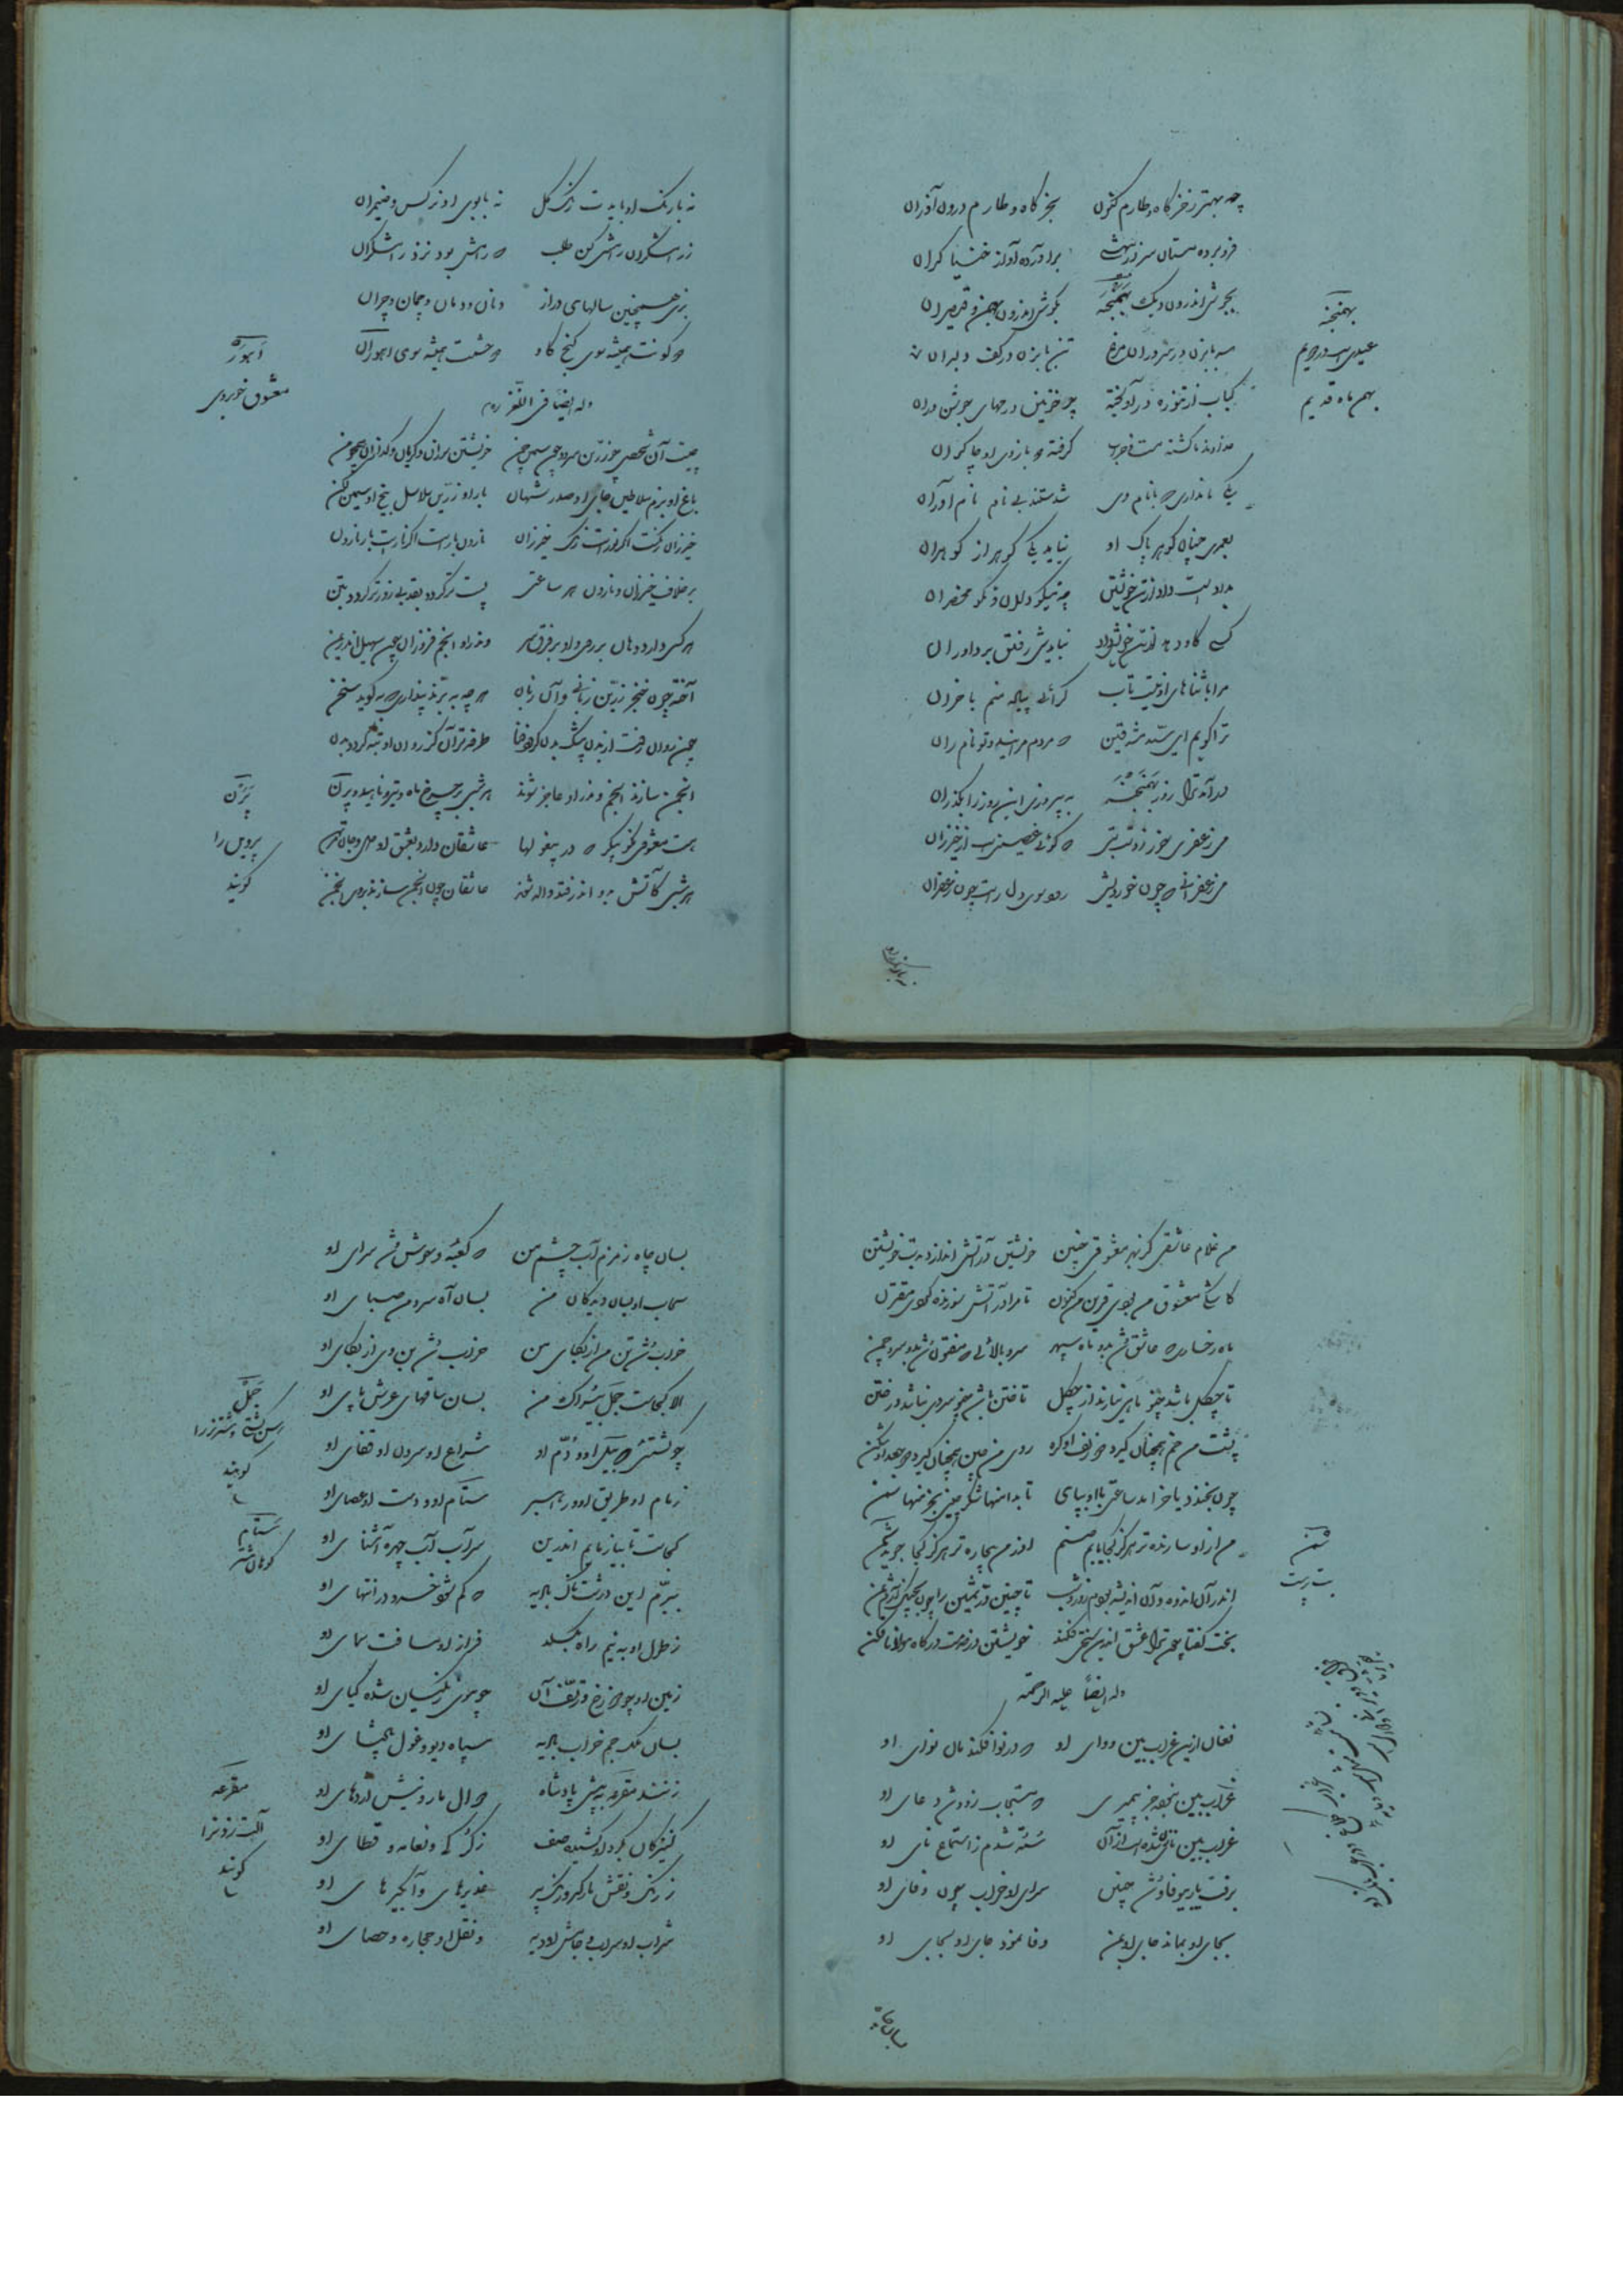 چه بهتر ز خرگاه و طارم کنون بخرگاه و طارم درون آذران
فرو برده مستان سر از بیهشی برآورده آواز خنیاگران
بجوش اندرون دیگ بهمنجنه بگوش اندرون بهمن و قیصران
بهمنجنه
عیدی است در
بهمن ماه قدیم
سر بابزن در سر و ران مرغ بن بابزن در کف دلبران
کباب از تنوره در آویخته چو خونین ورقهای جوشن وران
خداوند ما گشته مست و خراب گرفته دو بازوی او چاکران
یکی نامداری که با نام وی شدستند بی نام نام آوران
بعمری چنان گوهر پاک او نیاید یکی گوهر از گوهران
بداده است داد از تن خویشتن چه نیکو دلان و نکو محضران
کسی کاو دهد از تن خویش داد نبایدش رفتن بر داوران
مرا با ثناهای او نیست تاب
ترا گویم ای سید مشرقین که مردم مرانند و تو نامران
درآمد ترا روز بهمنجنه به پیروزی این روز را بگذران
می زعفری خور ز دست بتی که گویی قضیبی است از خیزران
می زعفرانی که چون خوردیش رود سوی دل راست چون زعفران
نه با رنگ او بایدت رنگ گل نه با بوی او نرگس و ضیمران
ز رامشگران رامشی کن طلب که رامش بود نزد رامشگران
بزی همچنین سالهای دراز دنان و دمان و چمان و چران
دو گوشت همیشه سوی گنج گاو دو چشمت همیشه سوی اهوران
اهوره
معشوق خوبروی
وله ایضا فی اللغز
چیست آن شخصی چو زرین سرو چون سیمین چمن خویشتن سوزان و گریان و گدازان همچو من
باغ او بزم سلاطین جای او صدر شهان بار او زرین سلاسل بیخ او سیمین لگن
خیزران رنگست اگر نورست رنگ خیزران نارون بارست اگر نارست بار نارون
بر خلاف خیزران و نارون هر ساعتی پست تر گردد بقد بی زور تر گردد بتن
هر کسی دارد دهان بر روی و او بر فرق سر وندر او انجم فروزان چون سهیل اندر یمن
آخته چون خنجر زرین زبانی وآن زبان هر چه به برند پنداری که به گوید سخن
چون روان رفت از بدن بی شک بدن گردد فنا طرفه تر آن کز روان او تبه گردد بدن
انجمن سازند انجم وندر او عاجز شوند هر شبی بر چرخ ماه و تیر و ناهید و پرن
پرن
پروین را
گویند
هست معشوقی نکو پیکر که در پیغولها عاشقان دارد بعشق او دل و جان مرتهن
هر شبی کآتش بدو اندر فتد واله شوند عاشقان چون انجمن سازند بر وی انجمن
من غلام عاشقی کز بهر معشوقی چنین خویشتن در آتش اندازد بدست خویشتن
کاشکی معشوق من بودی قرین من کنون تا مرا در آتش سوزنده کردی مقترن
ماه رخساری که عاشق شد بدو ماه سپهر سرو بالائی که مفتون شد بدو سرو چمن
تا چگل باشد چنو ماهی نیارند از چگل تا ختن باشد چنو سروی نباشد در ختن
پشت من خم همچنان گیرد که زلف او گره روی من چین همچنان گیرد که جعد او شکن
چون بخندد یا خرامد ساعتی با او بپای تا بدامنها شکر بینی بخرمنها سمن
من از او سازنده تر هرگز کجا یابم صنم او ز من بیچاره تر هرگز کجا جوید شمن
شمن
بت پرست
اندر آن اندوه و آن اندیشه بودم روز و شب
بخت گفتا چون ترا عشق اندرین سختی فکند خویشتن در خدمت درگاه مولانا فکن
وله ایضا علیه الرحمة
فغان ازین غراب بین و وای او که در نوا فکندمان نوای او
غراب بین نیست جز پیمبری که مستجاب زود شد دعای او
غراب بین نای زن شده است و من سته شدم ز استماع نای او
برفت یار بیوفا و شد چنین سرای او خراب چون وفای او
بجای او بماند جای او بمن وفا نمود جای او بجای او
بسان چاه
بسان چاه زمزم است چشم من که کعبه وحوش شد سرای او
سحاب او بسان دیدگان من بسان آه سرد من صبای او
خراب شد تن من از بکای من خراب شد تن وی از بکای او
الا کجاست جمل بادپای من بسان ساقهای عرش پای او
چو کشتئی که بیل او ز دم او شراع او سرون او قفای او
زمام او طریق او و راهبر سنام او و دست او عصای او
سنام
کوهان شتر
کجاست تا بیازمایم اندرین سراب آب چهره آشنای او
ببرم این درشتناک بادیه که گم شود خرد در انتهای او
ز طول او به نیم راه بگسلد فراز او مسافت سمای او
زمین او چو دوزخ و ز تف آن چو موی زنگیان شده گیای او
بسان ملک جم خراب بادیه سپاه دیو و غول پادشای او
زنند مقرعه به پیش پادشاه دوال مار و نیش اژدهای او
مقرعه
آلت زدن را
گویند
کنیزکان بگرد او کشیده صف ز کرکی و نعامه و قطای او
ز رنگ و نقش بال گرگ و رنگ ببر غدیرهای و آبگیرهای او
شراب او سراب و جامش اودیه و نقل او حجاره و حصای او